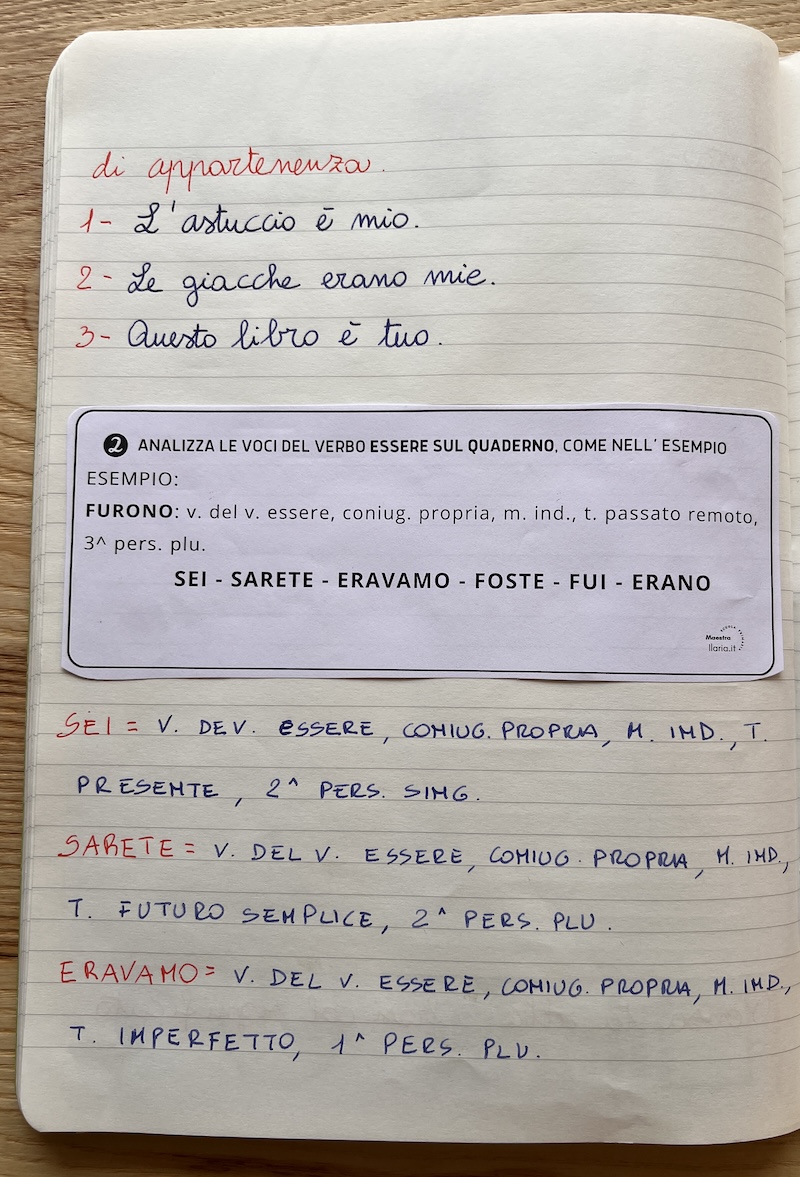 di appartenenza.
1- L'astuccio è mio.
2- Le giacche erano mie.
3- Questo libro è tuo.
2 ANALIZZA LE VOCI DEL VERBO ESSERE SUL QUADERNO, COME NELL' ESEMPIO
ESEMPIO:
FURONO: v. del v. essere, coniug. propria, m. ind., t. passato remoto,
3^ pers. plu.
SEI - SARETE - ERAVAMO - FOSTE - FUI - ERANO
Maestra
Ilaria.it
SEI = V. DEV. ESSERE, CONIUG. PROPRIA, M. IND., T.
PRESENTE, 2^ PERS. SING.
SARETE = V. DEL V. ESSERE, CONIUG. PROPRIA, M. IND.,
T. FUTURO SEMPLICE, 2^ PERS. PLU.
ERAVAMO = V. DEL V. ESSERE, CONIUG. PROPRIA, M. IND.,
T. IMPERFETTO, 1^ PERS. PLU.